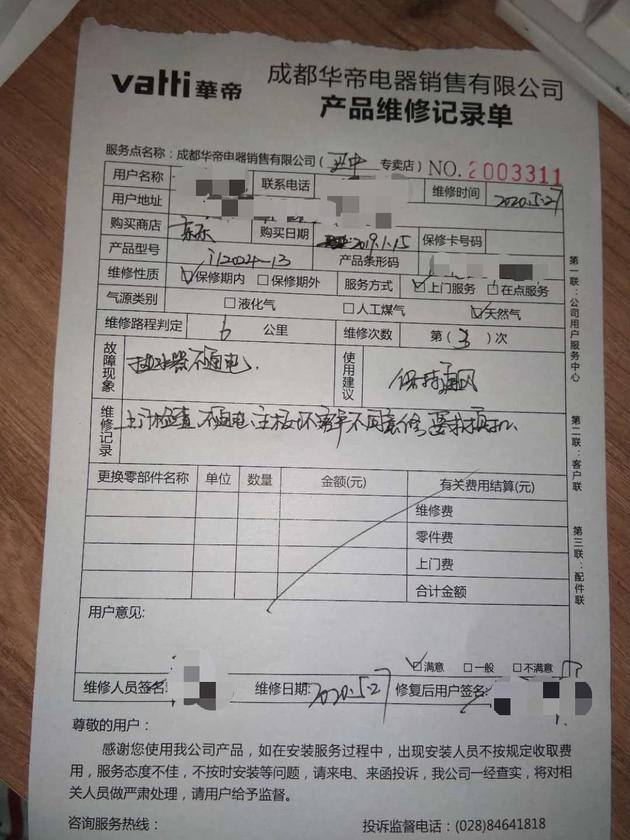 vatti 華帝 成都华帝电器销售有限公司
产品维修记录单
服务点名称：成都华帝电器销售有限公司( 专卖店) NO.2003311
用户名称 联系电话 维修时间 2020.5.27
用户地址
购买商店 京东 购买日期 2019.1.15 保修卡号码
产品型号 i12024-13 产品条形码
维修性质 ☑保修期内 □保修期外 服务方式 ☑上门服务 □在点服务
气源类别 □液化气 □人工煤气 ☑天然气
维修路程判定 6 公里 维修次数 第(3)次
故障现象 热水器不通电. 使用建议 保持通风
维修记录 上门检查,不通电,主板坏 不同意修,要求换机.
更换零部件名称 单位 数量 金额(元) 有关费用结算(元)
维修费
零件费
上门费
合计金额
用户意见:
☑满意 □一般 □不满意
维修人员签名: 维修日期:2020.5.27 修复后用户签名:
尊敬的用户：
感谢您使用我公司产品，如在安装服务过程中，出现安装人员不按规定收取费
用，服务态度不佳，不按时安装等问题，请来电、来函投诉，我公司一经查实，将对
相关人员做严肃处理，请用户给予监督。
咨询服务热线： 投诉监督电话：(028)84641818
第一联：公司用户服务中心
第二联：客户联
第三联：配件联